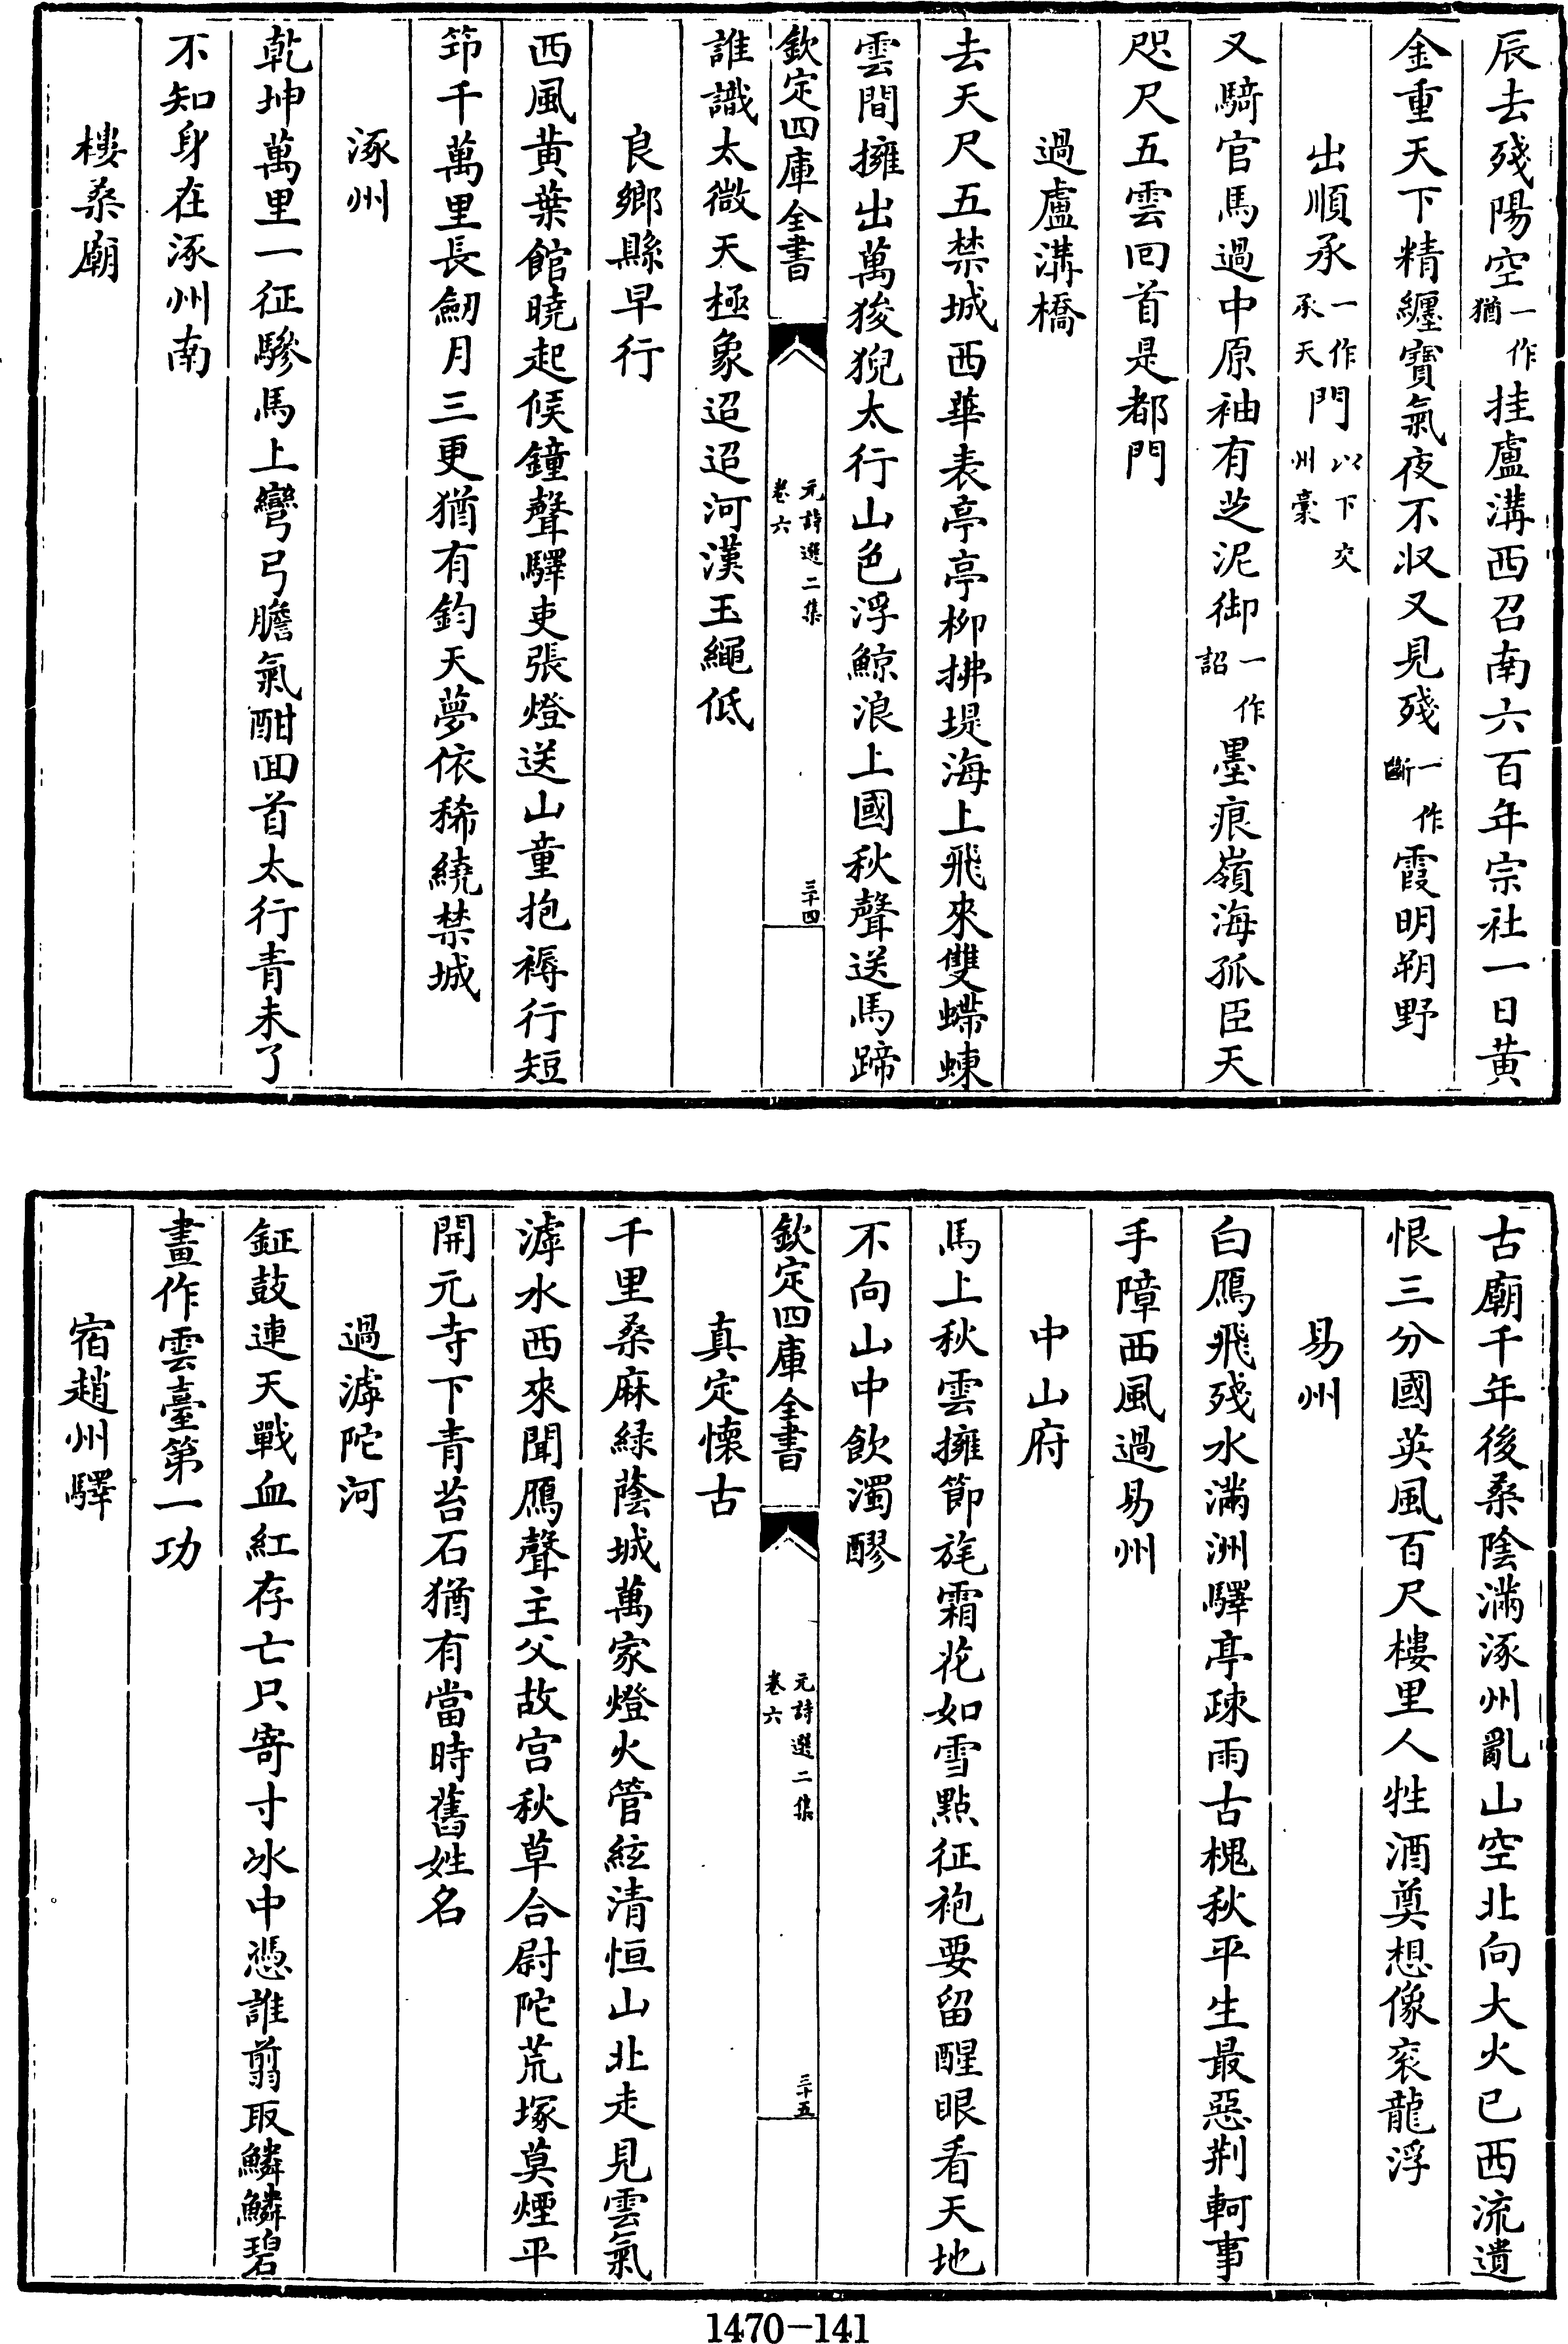 辰去殘陽空一作猶挂盧溝西召南六百年宗社一日黄
金重天下精纏寳氣夜不収又見殘一作斷霞明朔野
出順承一作承天門以下交州稾
又騎官馬過中原袖有芝泥御一作詔墨痕嶺海孤臣天
咫尺五雲回首是都門
過盧溝橋
去天尺五禁城西華表亭亭柳拂堤海上飛來雙螮蝀
雲間擁出萬狻猊太行山色浮鯨浪上國秋聲送馬蹄
欽定四庫全書
元詩選二集
卷六
三十四
誰識太微天極象迢迢河漢玉繩低
良鄉縣早行
西風黄葉館曉起候鐘聲驛吏張燈送山童抱褥行短
笻千萬里長劒月三更猶有鈞天夢依稀繞禁城
涿州
乾坤萬里一征驂馬上彎弓膽氣酣回首太行青未了
不知身在涿州南
樓桑廟
古廟千年後桑陰滿涿州亂山空北向大火已西流遺
恨三分國英風百尺樓里人牲酒奠想像衮龍浮
易州
白鴈飛殘水滿洲驛亭疎雨古槐秋平生最惡荆軻事
手障西風過易州
中山府
馬上秋雲擁節旄霜花如雪點征袍要留醒眼看天地
不向山中飲濁醪
欽定四庫全書
元詩選二集
卷六
三十五
真定懷古
千里桑麻緑蔭城萬家燈火管絃清恒山北走見雲氣
滹水西來聞鴈聲主父故宫秋草合尉陀荒塚莫煙平
開元寺下青苔石猶有當時舊姓名
過滹陀河
鉦鼓連天戰血紅存亡只寄寸冰中憑誰翦取鱗鱗碧
畫作雲臺第一功
宿趙州驛
1470-141